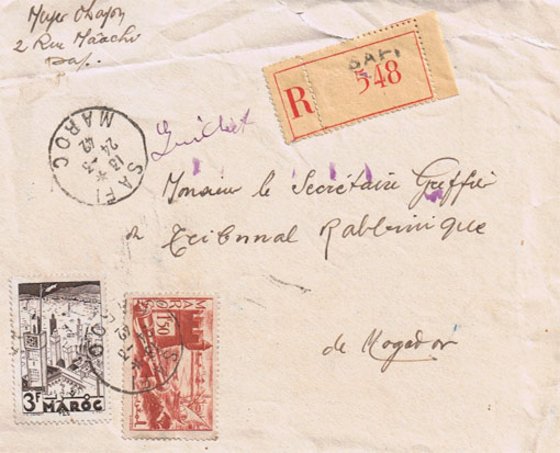 Meyer Ohayon
2 Rue Mâachi
Safi.
R
SAFI
548
SAFI
13 *
24 -3
42
MAROC
Guichet
Monsieur le Secrétaire Greffier
Tribunal Rabbinique
de Mogador
3F MAROC
MAROC
1F50